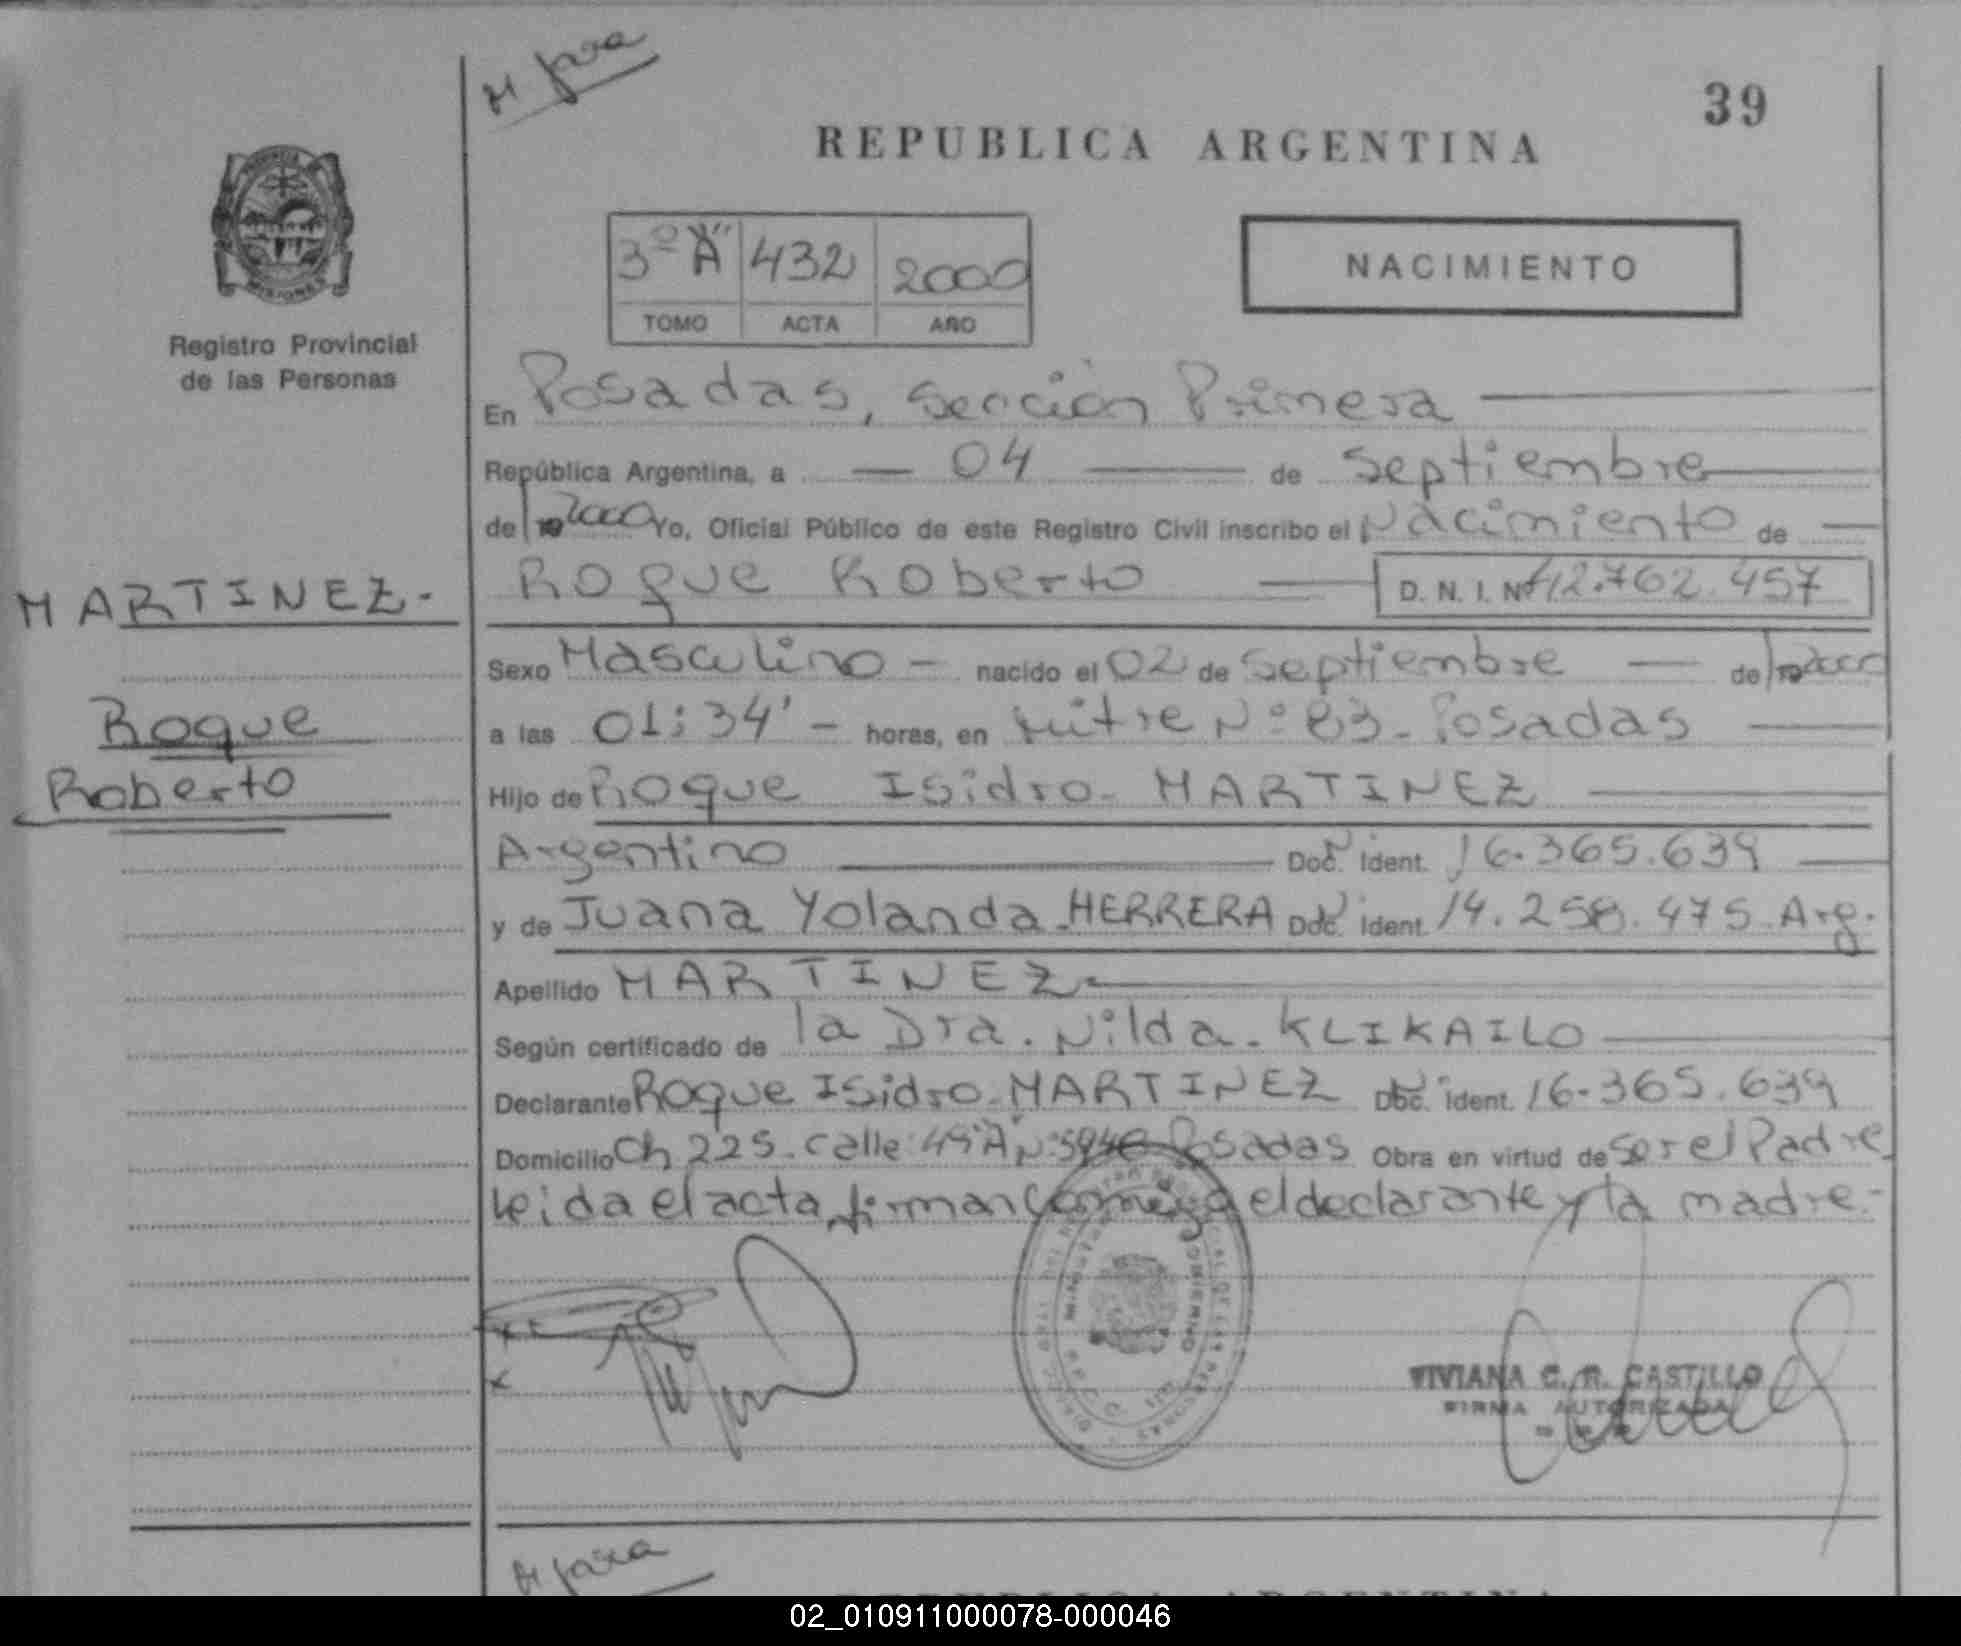 39
REPUBLICA ARGENTINA
3º "A" 432 2000
TOMO ACTA AÑO
NACIMIENTO
MISIONES
Registro Provincial
de las Personas
En Posadas, Sección Primera
República Argentina, a 04 de Septiembre
de 2000 Yo, Oficial Público de este Registro Civil inscribo el Nacimiento de
MARTINEZ.
Roque Roberto D. N. I. Nº 42.762.457
Sexo Masculino - nacido el 02 de Septiembre de 2000
Roque
a las 01:34' - horas, en Mitre Nº 83 - Posadas
Roberto
Hijo de Roque Isidro - MARTINEZ
Argentino Doc. Ident. 16.365.639
y de Juana Yolanda - HERRERA Doc. Ident. 14.258.475 - Arg.
Apellido MARTINEZ
Según certificado de la Dra. Nilda - KLIKAILO
Declarante Roque Isidro - MARTINEZ Doc. Ident. 16.365.639
Domicilio Ch 225 - Calle: 49 "A" Posadas Obra en virtud de ser el Padre
leida el acta, firman conmigo el declarante y la madre -
VIVIANA C. R. CASTILLO
FIRMA AUTORIZADA
REPUBLICA ARGENTINA
02_010911000078-000046